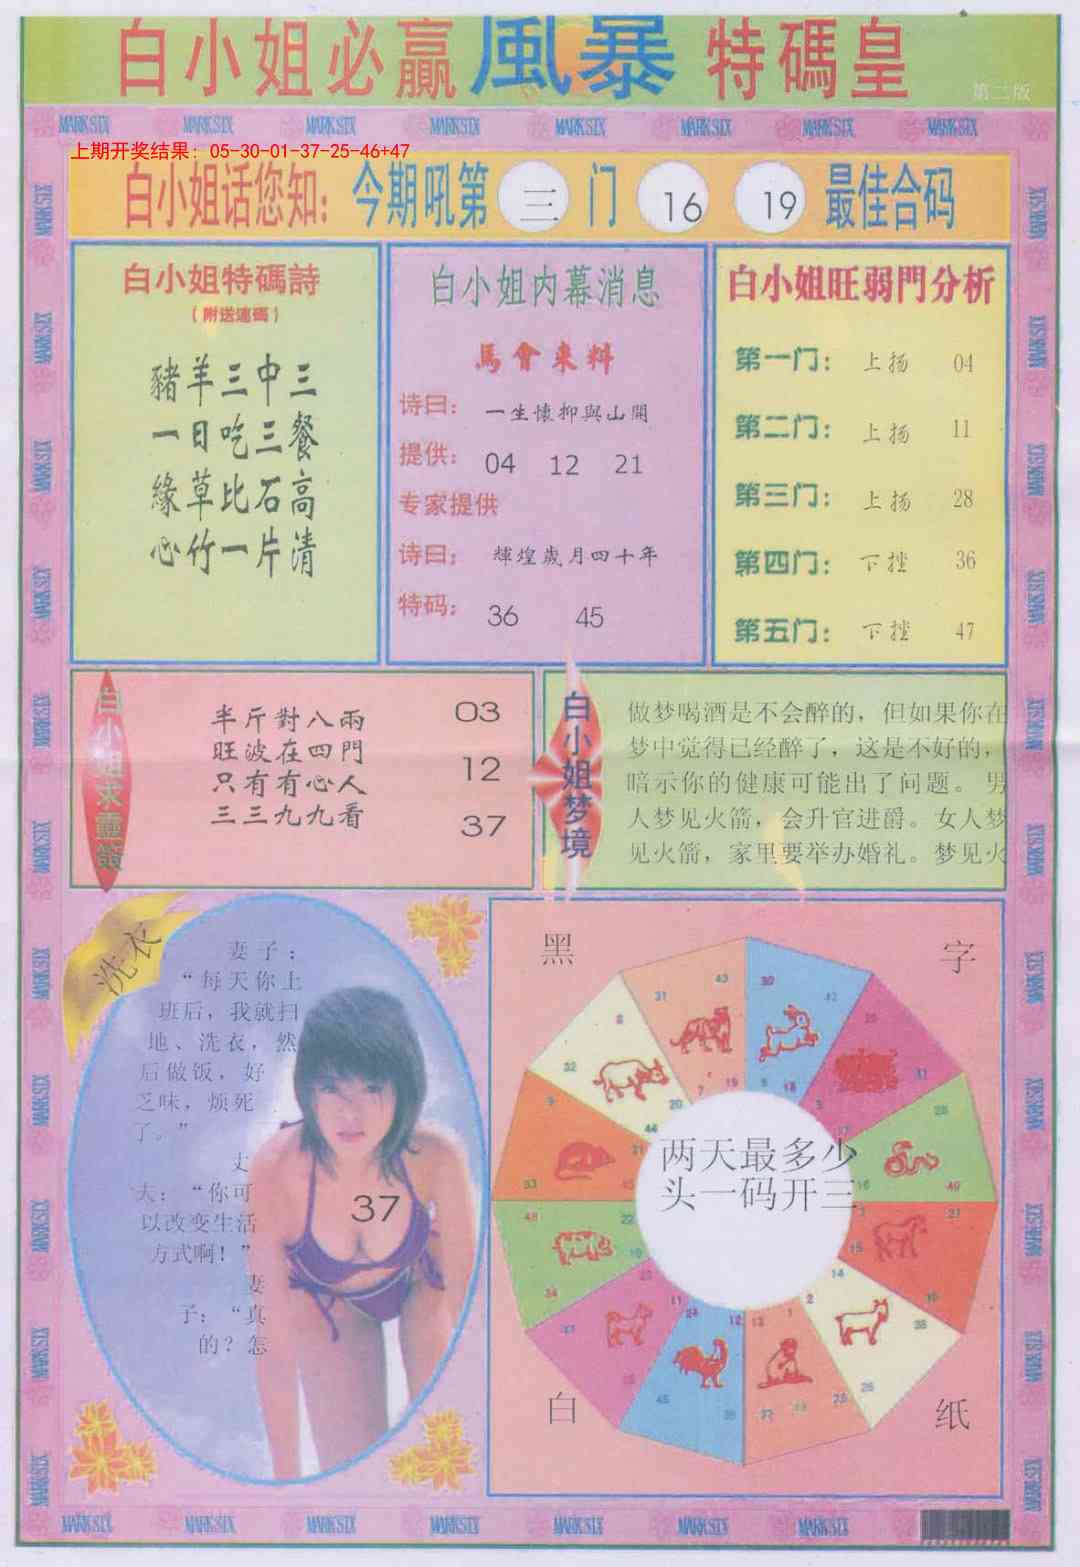 白小姐必贏風暴特碼皇
第二版
MARK SIX MARK SIX MARK SIX MARK SIX MARK SIX MARK SIX MARK SIX MARK SIX
上期开奖结果：05-30-01-37-25-46+47
白小姐话您知：今期吼第 三 门 16 19 最佳合码
白小姐特碼詩
（附送連碼）
豬羊三中三
一日吃三餐
緣草比石高
心竹一片清
白小姐内幕消息
馬會來料
诗曰：一生懷抑與山開
提供：04 12 21
专家提供
诗曰：輝煌歲月四十年
特码：36 45
白小姐旺弱門分析
第一门：上扬 04
第二门：上扬 11
第三门：上扬 28
第四门：下挫 36
第五门：下挫 47
白小姐求靈簽
半斤對八兩
旺波在四門
只有有心人
三三九九看
03
12
37
白小姐梦境
做梦喝酒是不会醉的，但如果你在
梦中觉得已经醉了，这是不好的，
暗示你的健康可能出了问题。男
人梦见火箭，会升官进爵。女人梦
见火箭，家里要举办婚礼。梦见火
洗衣
妻子：
“每天你上
班后，我就扫
地、洗衣，然
后做饭，好
乏味，烦死
了。”
丈
夫：“你可
以改变生活
方式啊！”
妻
子：“真
的？怎
37
黑
字
两天最多少
头一码开三
白
纸
MARK SIX MARK SIX MARK SIX MARK SIX MARK SIX MARK SIX MARK SIX MARK SIX